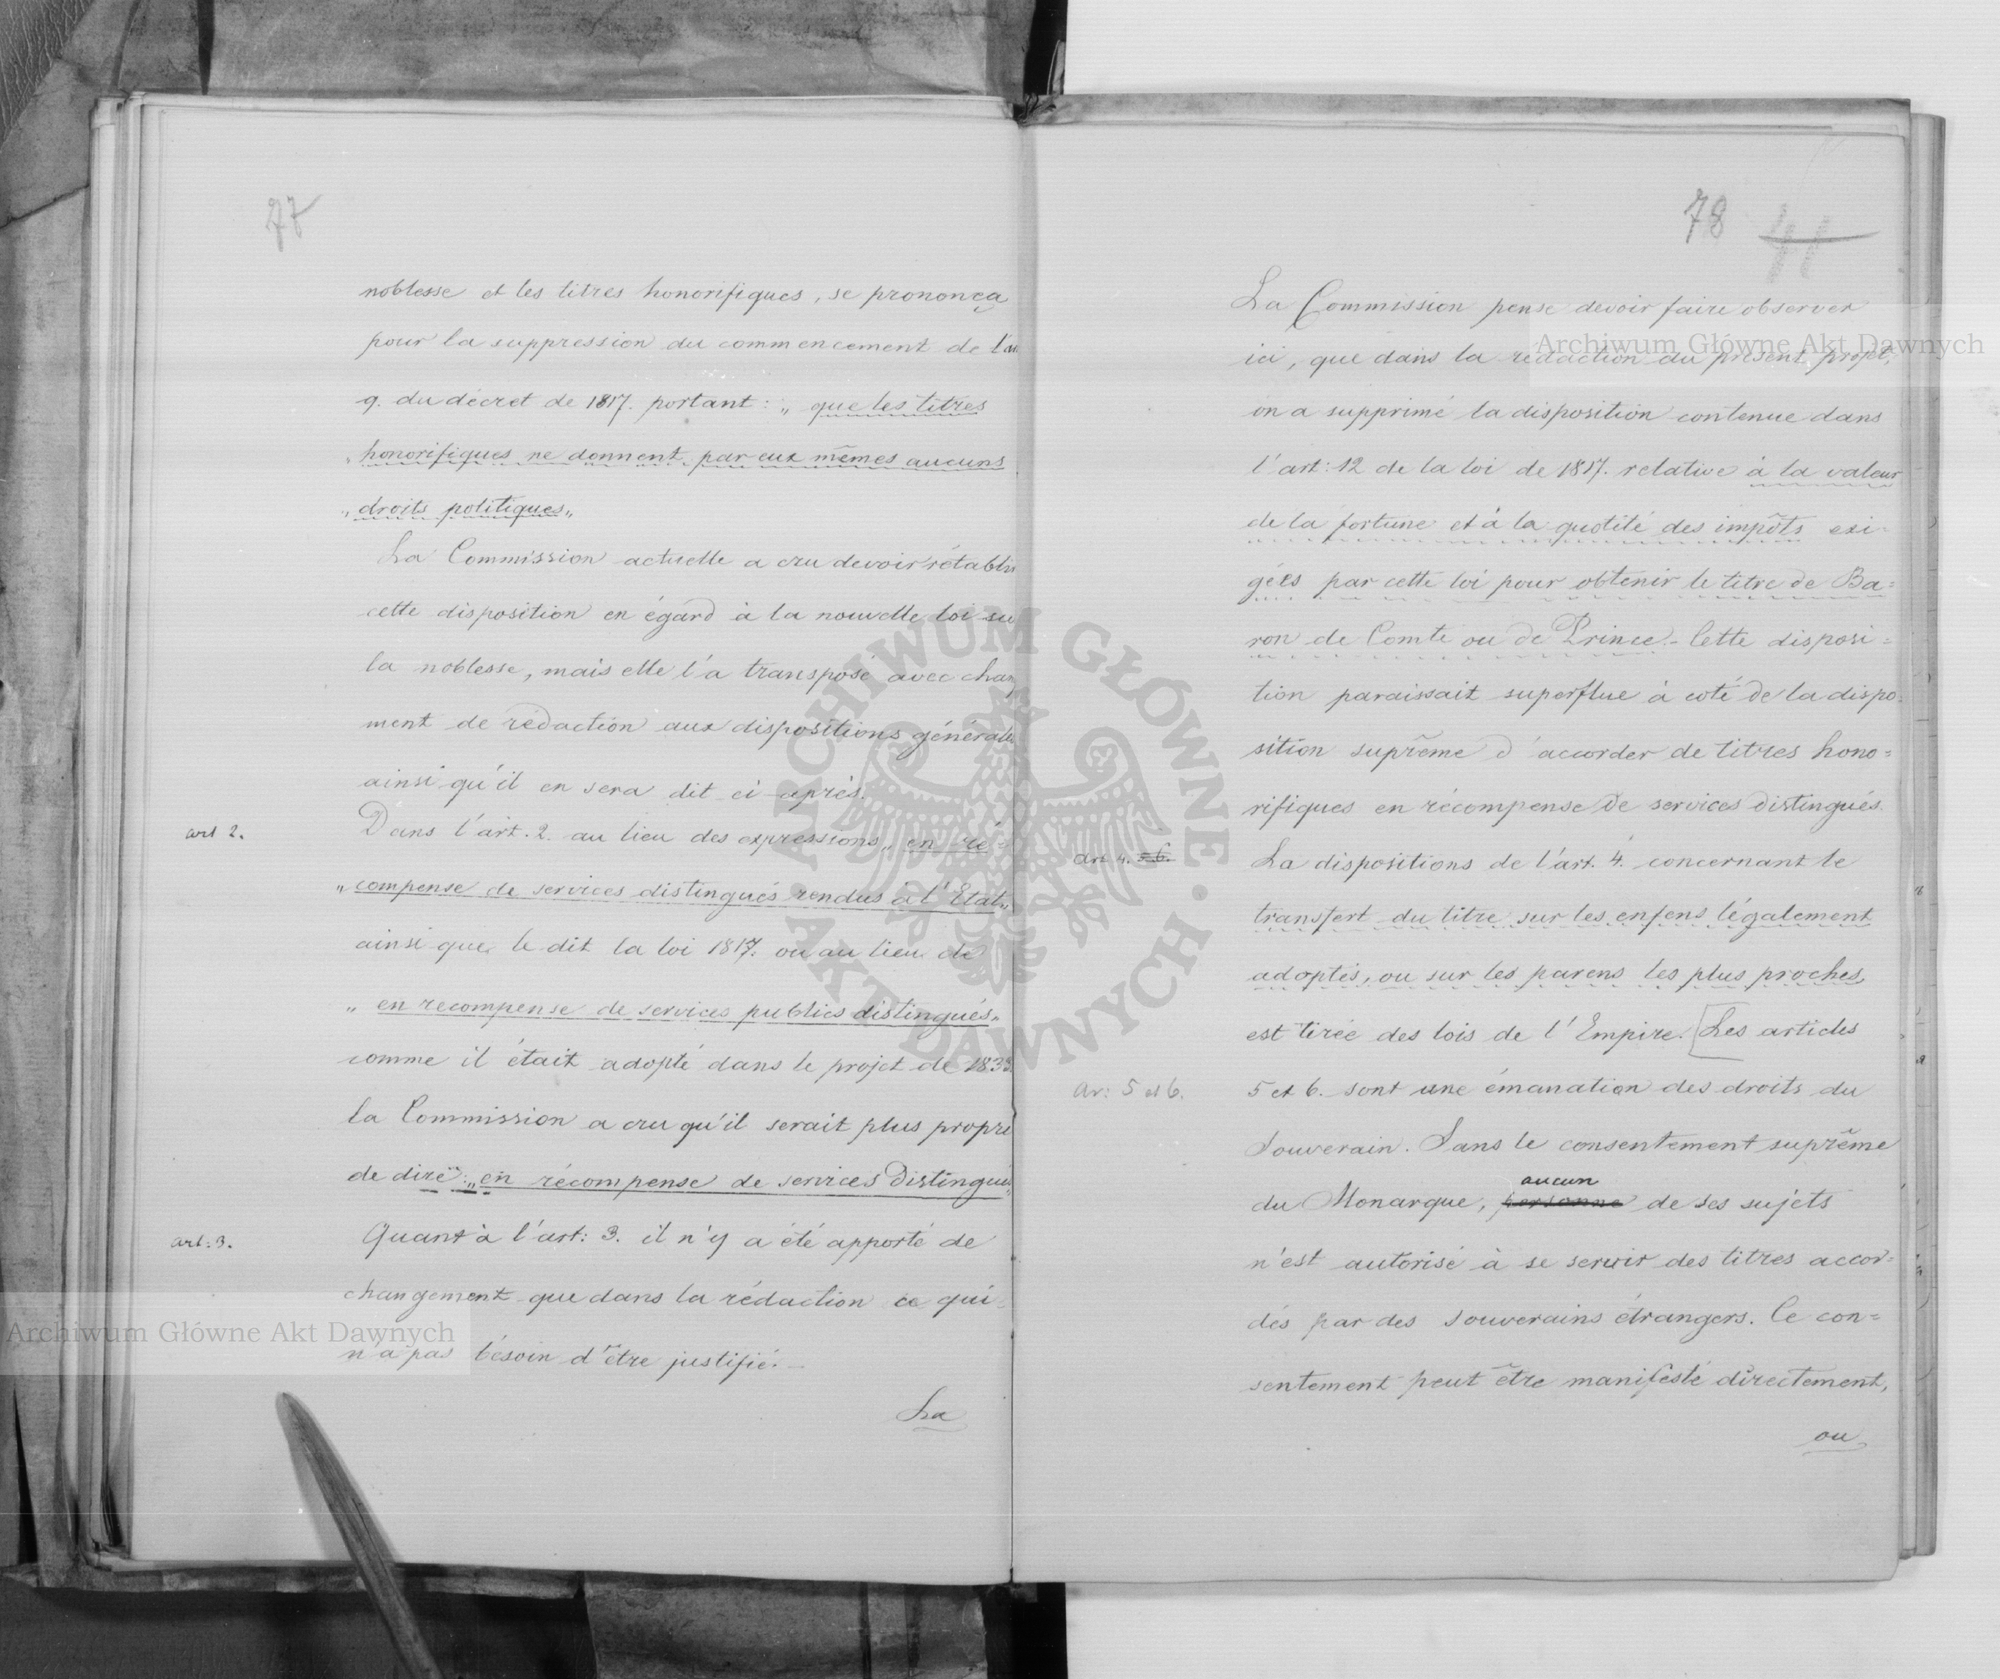 77
noblesse et les titres honorifiques, se prononça
pour la suppression du commencement de l'a
9. du décret de 1817. portant: „ que les titres
„ honorifiques ne donnent par eux mêmes aucuns
„ droits politiques„
La Commission actuelle a cru devoir rétablir
cette disposition en égard à la nouvelle loi su
la noblesse, mais elle l'a transposé avec chan
ment de rédaction aux dispositions générales
ainsi qu'il en sera dit ci après.
art 2.
Dans l'art. 2. au lieu des expressions „ en ré=
„ compense de services distingués rendus à l'Etat„
ainsi que le dit la loi 1817. ou au lieu de
„ en recompense de services publics distingués„
comme il était adopté dans le projet de 183
la Commission a cru qu'il serait plus propre
de dire: „en récompense de services distingués
art: 3.
Quant à l'art: 3. il n'y a été apporté de
changement que dans la rédaction ce qui
n'a pas bésoin d'être justifié.—
La
78 41
La Commission pense devoir faire observer
ici, que dans la rédaction du présent projet,
on a supprimé la disposition contenue dans
l'art: 12 de la loi de 1817. relative à la valeur
de la fortune et à la quotité des impôts exi=
gées par cette loi pour obtenir le titre de Ba=
ron de Comte ou de Prince.- Cette disposi=
tion paraissait superflue à coté de la dispo=
sition suprême d'accorder de titres hono=
rifiques en récompense de services distingués.
art 4. =6.
La dispositions de l'art. 4. concernant le
transfert du titre sur les enfens légalement
adoptés, ou sur les parens les plus proches,
est tirée des lois de l'Empire. [Les articles
ar: 5 et 6.
5 et 6. sont une émanation des droits du
Souverain. Sans le consentement suprême
aucun
du Monarque, personne de ses sujets
n'est autorisé à se servir des titres accor=
dés par des souverains étrangers. Ce con=
sentement peut être manifesté directement,
ou
Archiwum Główne Akt Dawnych
Archiwum Główne Akt Dawnych
ARCHIWUM GŁÓWNE
· AKT DAWNYCH ·